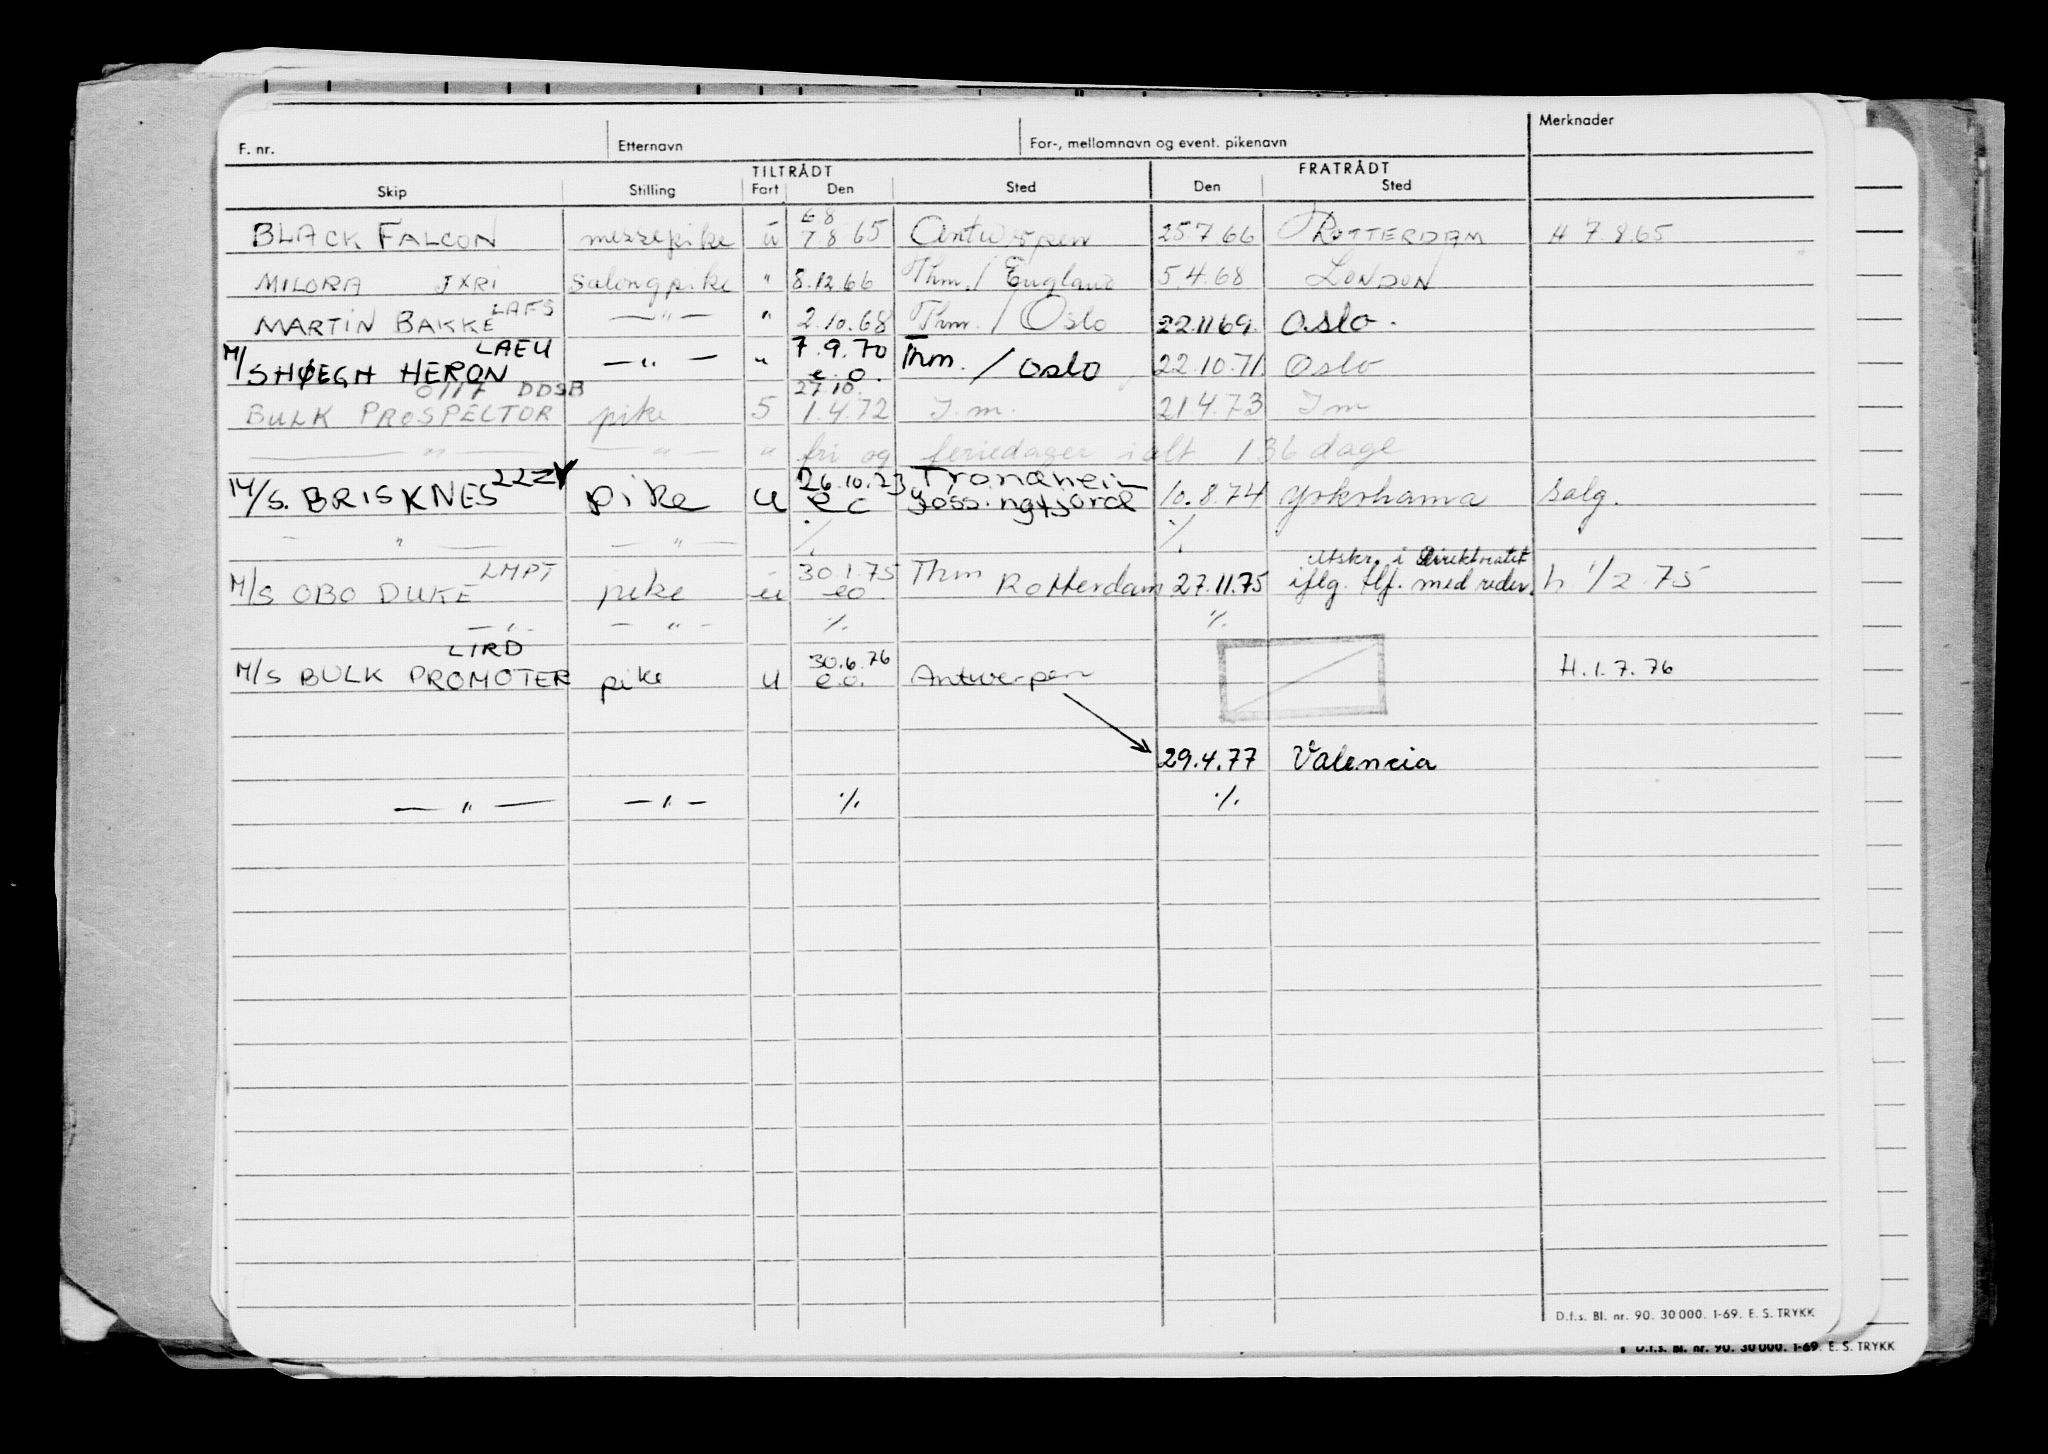 F. nr. Etternavn For-, mellomnavn og event. pikenavn Merknader
TILTRÅDT FRATRÅDT
Skip Stilling Fart Den Sted Den Sted
6 8
BLACK FALCON messepike u 7.8.65 Antwerpen 25766 ROTTERDAM H 7.8.65
MILORA JXRI salongpike " 8.12.66 Thm. / England 5.4.68 LONDON
LAFS
MARTIN BAKKE — " — " 2.10.68 Thm. / Oslo 22.11 69. Oslo.
LAEU 7.9.70
M/SHØEGH HERON — " — " e.o. Thm. / Oslo 22.10.71. Oslo
DDSB 27.10.
BULK PROSPECTOR pike 5 1.4.72 I.m. 214.73 I m
— " — — " — " fri og feriedager ialt 136 dage
22ZV 26.10.23 Trondheim
M/S. BRISKNES pike u e c Jøssingfjord 10.8.74 Yokohama salg.
— " — — " — ./. ./.
LMPT 30.1.75 Thm Utskr. i Direktoratet
M/S OBO DUKE pike u eo. Rotterdam 27.11.75 iflg. tlf. med reder. h. 1/2.75
— " — — " — ./. ./.
LIRD 30.6.76
M/S BULK PROMOTER pike u e.o. Antwerpen H.1.7.76
29.4.77 Valencia
— " — — " — ./. ./.
D.f.s. Bl. nr. 90. 30 000. 1-69. E. S. TRYKK
D.f.s. Bl. nr. 90. 30 000. 1-69. E. S. TRYKK